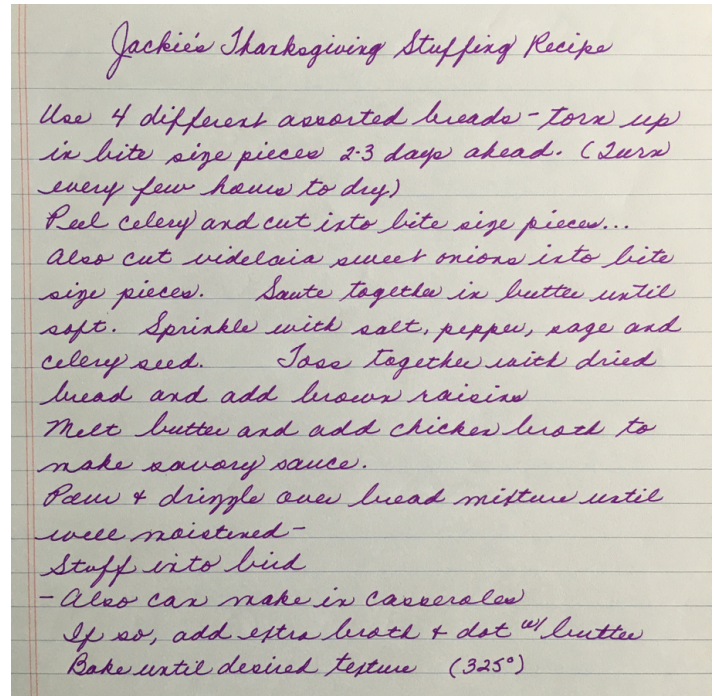 Jackie's Thanksgiving Stuffing Recipe
Use 4 different assorted breads - torn up
in bite size pieces 2-3 days ahead. (Turn
every few hours to dry)
Peel celery and cut into bite size pieces...
Also cut videlaia sweet onions into bite
size pieces. Saute together in butter until
soft. Sprinkle with salt, pepper, sage and
celery seed. Toss together with dried
bread and add brown raisins
Melt butter and add chicken broth to
make savory sauce.
Pour + drizzle over bread mixture until
well moistened -
Stuff into bird
- Also can make in casseroles
If so, add extra broth + dot w/ butter
Bake until desired texture (325°)